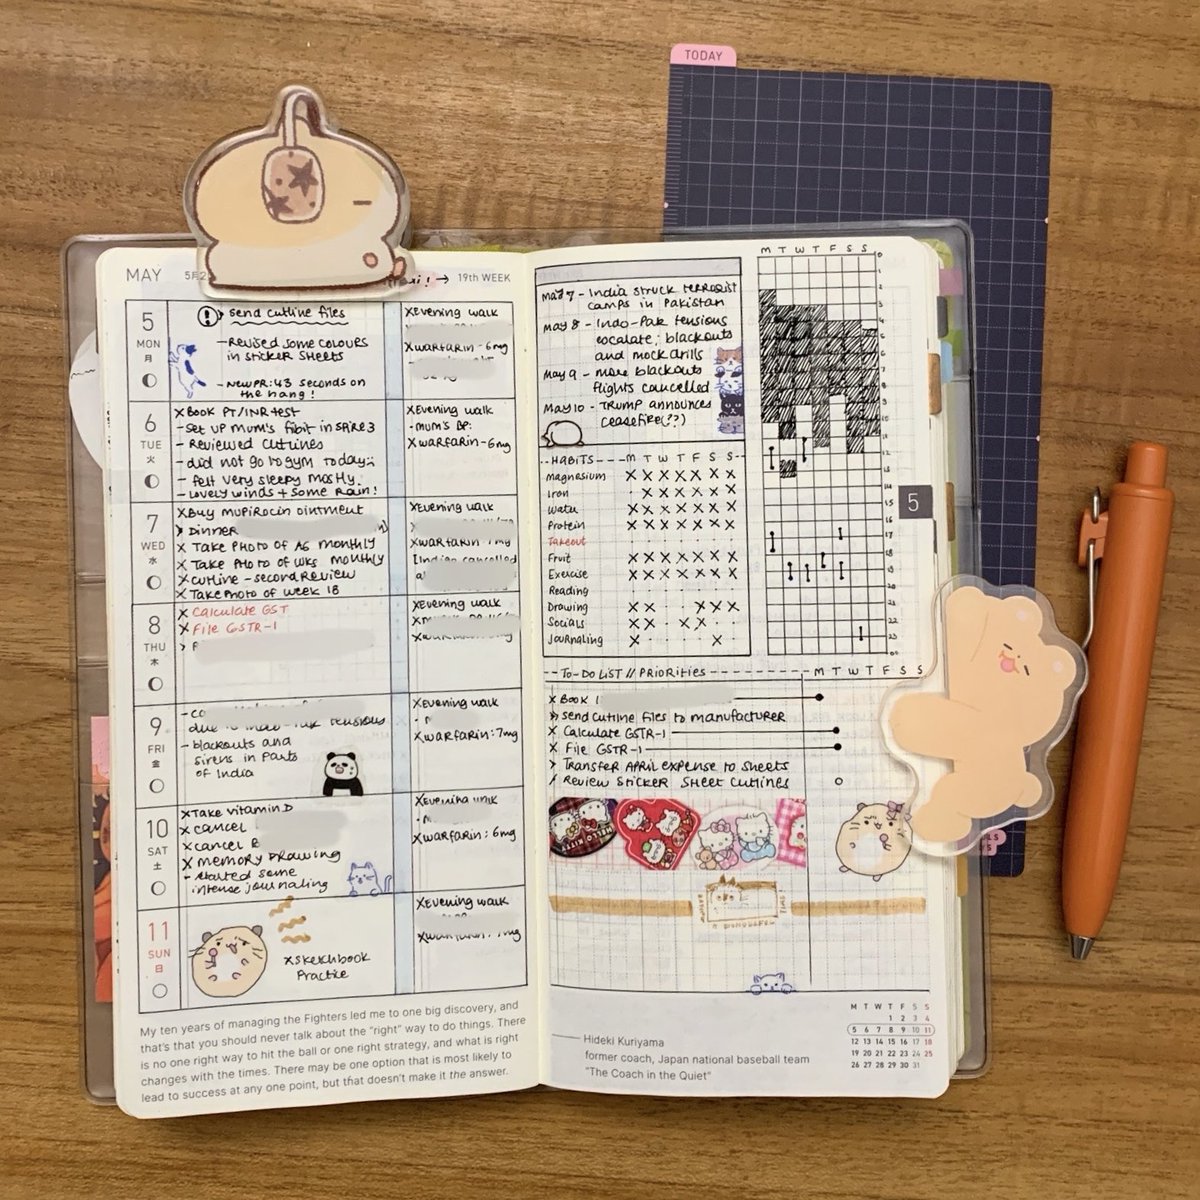 TODAY
MAY
19th WEEK
5
MON
月
send cutline files
- Revised some colours
in sticker sheets
- New PR: 43 seconds on
the hang!
xEvening walk
xwarfarin - 6mg
6
TUE
火
x Book PT/INR test
- Set up mum's fibit in spire 3
- Reviewed cutlines
- did not go to gym today
- felt very sleepy mostly.
- Lovely winds + some rain!
xEvening walk
- mum's BP:
xwarfarin - 6mg
7
WED
水
xBuy mupirocin ointment
Dinner
x Take photo of A6 monthly
x Take photo of wks monthly
xcutline - second review
x Take photo of week 18
xEvening walk
8
THU
木
x Calculate GST
x File GSTR-1
xEvening walk
9
FRI
金
tensions
- blackouts and
sirens in parts
of India
xEvening walk
xwarfarin: 7mg
10
SAT
土
xTake vitamin D
x cancel
xcancel
x memory drawing
- started some
intense journaling
xwarfarin: 6mg
11
SUN
日
xsketchbook
practice
xEvening walk
My ten years of managing the Fighters led me to one big discovery, and
that's that you should never talk about the "right" way to do things. There
is no one right way to hit the ball or one right strategy, and what is right
changes with the times. There may be one option that is most likely to
lead to success at any one point, but that doesn't make it the answer.
May 7 - India struck terrorist
camps in Pakistan
May 8 - Indo-Pak tensions
escalate; blackouts
and mock drills
May 9 - more blackouts
flights cancelled
May 10 - TRUMP announces
ceasefire(??)
M T W T F S S
Habits M T W T F S S
Magnesium x x x x x x x
Iron x x x x x x
Water x x x x x x x
Protein x x x x x x x
Takeout
Fruit x x x x x x x
Exercise x x x x x x x
Reading
Drawing x x x x x
Socials x x x x
Journaling x x
5
To-Do List // Priorities M T W T F S S
x Book
send cutline files to manufacturer
x Calculate GSTR-1
x File GSTR-1
> Transfer April expense to sheets
/ Review sticker sheet cutlines
Hideki Kuriyama
former coach, Japan national baseball team
"The Coach in the Quiet"
M T W T F S S
1 2 3 4
5 6 7 8 9 10 11
12 13 14 15 16 17 18
19 20 21 22 23 24 25
26 27 28 29 30 31